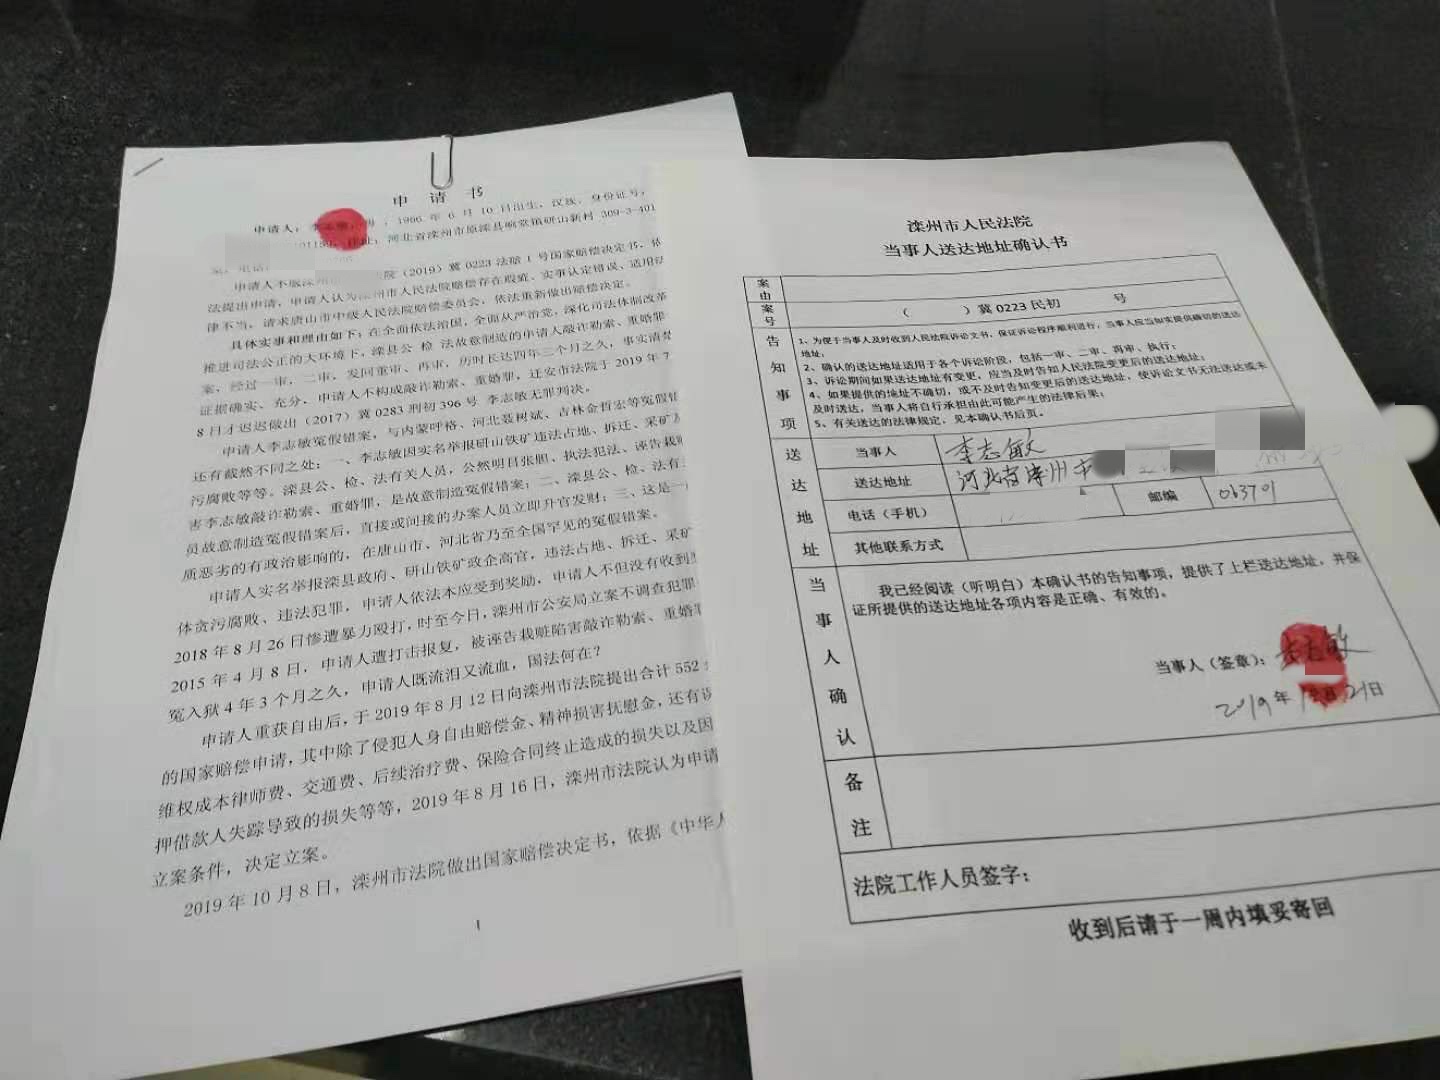 申请书
申请人：李志敏，男，1966年6月10日出生，汉族，身份证号，
住址：河北省滦州市原滦县响堂镇研山新村309-3-401
案，电话：
申请人不服滦州市法院（2019）冀0223法赔1号国家赔偿决定书，依
法提出申请，申请人认为滦州市人民法院赔偿存在瑕疵、实事认定错误、适用法
律不当，请求唐山市中级人民法院赔偿委员会，依法重新做出赔偿决定。
具体实事和理由如下：在全面依法治国，全面从严治党，深化司法体制改革
推进司法公正的大环境下，滦县公 检 法故意制造的申请人敲诈勒索、重婚罪
案，经过一审，二审，发回重审、再审，历时长达四年三个月之久，事实清楚
证据确实、充分，申请人不构成敲诈勒索、重婚罪，迁安市法院于2019年7
8日才迟迟做出（2017）冀0283刑初396号 李志敏无罪判决。
申请人李志敏冤假错案，与内蒙呼格、河北聂树斌、吉林金哲宏等冤假错
还有截然不同之处：一、李志敏因实名举报研山铁矿违法占地、拆迁、采矿及
污腐败等等。滦县公、检、法有关人员，公然明目张胆、执法犯法、诬告栽赃
害李志敏敲诈勒索、重婚罪，是故意制造冤假错案；二、滦县公、检、法有关
员故意制造冤假错案后，直接或间接的办案人员立即升官发财；三、这是一
质恶劣的有政治影响的，在唐山市、河北省乃至全国罕见的冤假错案。
申请人实名举报滦县政府、研山铁矿政企高官，违法占地、拆迁、采矿
体贪污腐败、违法犯罪，申请人依法本应受到奖励，申请人不但没有收到
2018年8月26日惨遭暴力殴打，时至今日，滦州市公安局立案不调查犯罪
2015年4月8日，申请人遭打击报复，被诬告栽赃陷害敲诈勒索、重婚罪
冤入狱4年3个月之久，申请人既流泪又流血，国法何在？
申请人重获自由后，于2019年8月12日向滦州市法院提出合计552
的国家赔偿申请，其中除了侵犯人身自由赔偿金、精神损害抚慰金，还有误
维权成本律师费、交通费、后续治疗费、保险合同终止造成的损失以及因
押借款人失踪导致的损失等等，2019年8月16日，滦州市法院认为申请
立案条件，决定立案。
2019年10月8日，滦州市法院做出国家赔偿决定书，依据《中华人
1
滦州市人民法院
当事人送达地址确认书
案由
案号 （ ）冀0223民初 号
告知事项
1、为便于当事人及时收到人民法院诉讼文书，保证诉讼程序顺利进行，当事人应当如实提供确切的送达
地址；
2、确认的送达地址适用于各个诉讼阶段，包括一审、二审、再审、执行；
3、诉讼期间如果送达地址有变更，应当及时告知人民法院变更后的送达地址；
4、如果提供的地址不确切，或不及时告知变更后的送达地址，使诉讼文书无法送达或未
及时送达，当事人将自行承担由此可能产生的法律后果；
5、有关送达的法律规定，见本确认书后页。
送达地址
当事人 李志敏
送达地址 河北省滦州市
电话（手机） 邮编 063701
其他联系方式
当事人确认
我已经阅读（听明白）本确认书的告知事项，提供了上栏送达地址，并保
证所提供的送达地址各项内容是正确、有效的。
当事人（签章）：李志敏
2019年 月21日
备注
法院工作人员签字：
收到后请于一周内填妥寄回